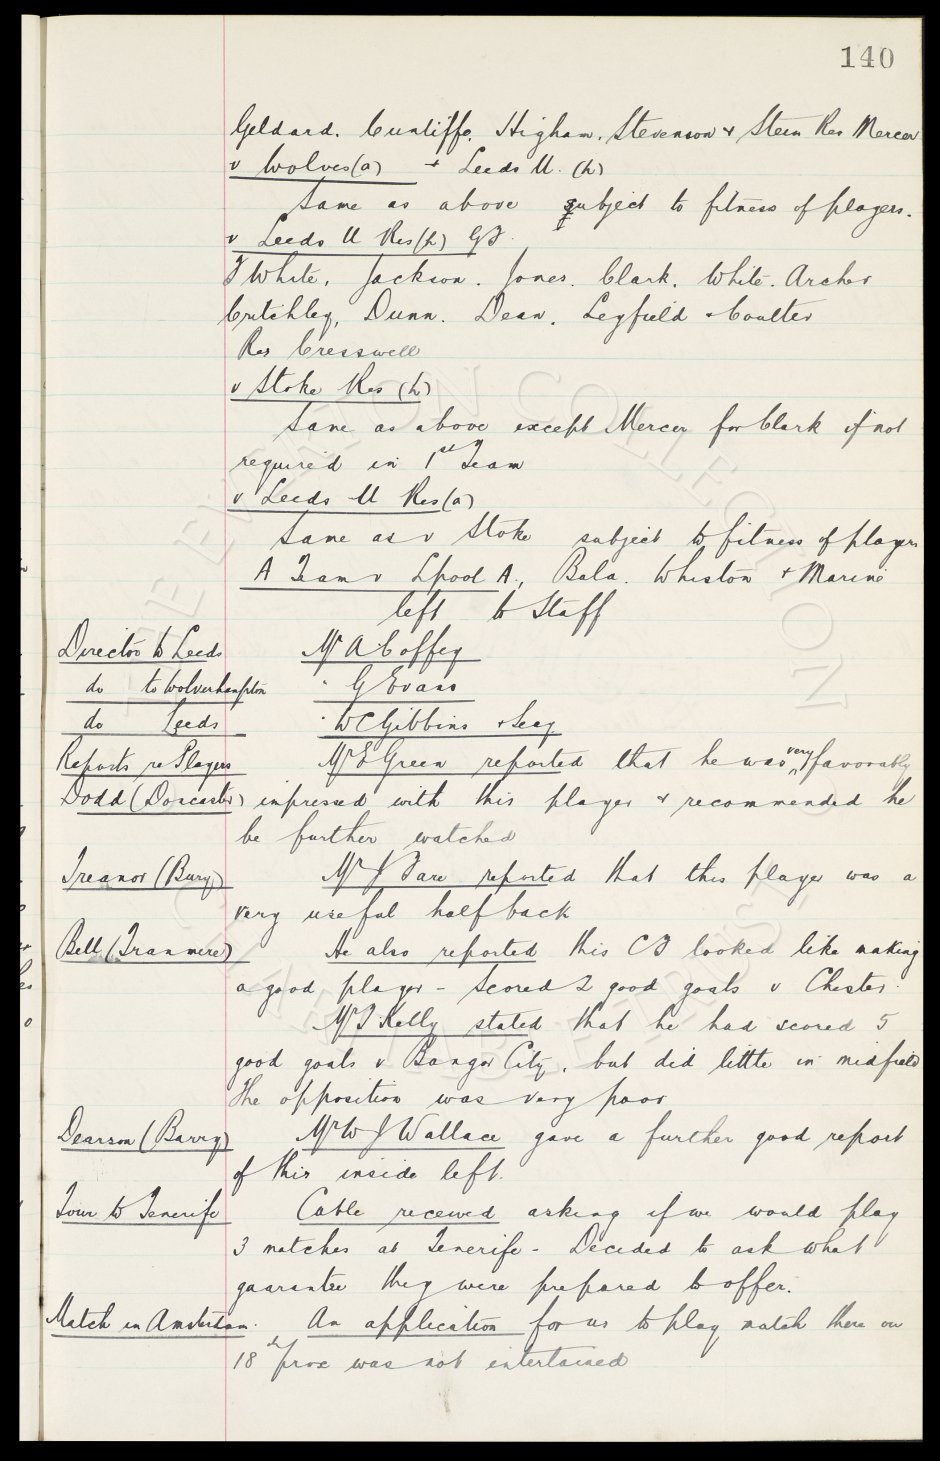 140
Geldard. Cunliffe. Higham. Stevenson & Stein Res Mercer
v Wolves (a) + Leeds U. (h)
Same as above subject to fitness of players.
v Leeds U Res (h) GJ
T White. Jackson. Jones. Clark. White. Archer
Critchley, Dunn. Dean. Leyfield & Coulter
Res Cresswell
v Stoke Res (h)
Same as above except Mercer for Clark if not
required in 1st Team
v Leeds U Res (a)
Same as v Stoke subject to fitness of players
A Team v Lpool A., Bala. Whiston & Marine
left to Staff
Director to Leeds Mr A Coffey
do to Wolverhampton " G Evans
do Leeds " W C Gibbins & Secy
Reports re Players Mr E Green reported that he was very favorably
Dodd (Doncaster) impressed with this player & recommended he
be further watched
Treanor (Bury) Mr J Fare reported that this player was a
very useful half back
Bell (Tranmere) He also reported this CF looked like making
a good player - Scored 2 good goals v Chester.
Mr T Kelly stated that he had scored 5
good goals v Bangor City, but did little in midfield
The opposition was very poor
Dearson (Barry) Mr W J Wallace gave a further good report
of this inside left.
Tour to Tenerife Cable received asking if we would play
3 matches at Tenerife - Decided to ask what
guarantee they were prepared to offer.
Match in Amsterdam. An application for us to play match there on
18th prox was not entertained
THE EVERTON COLLECTION